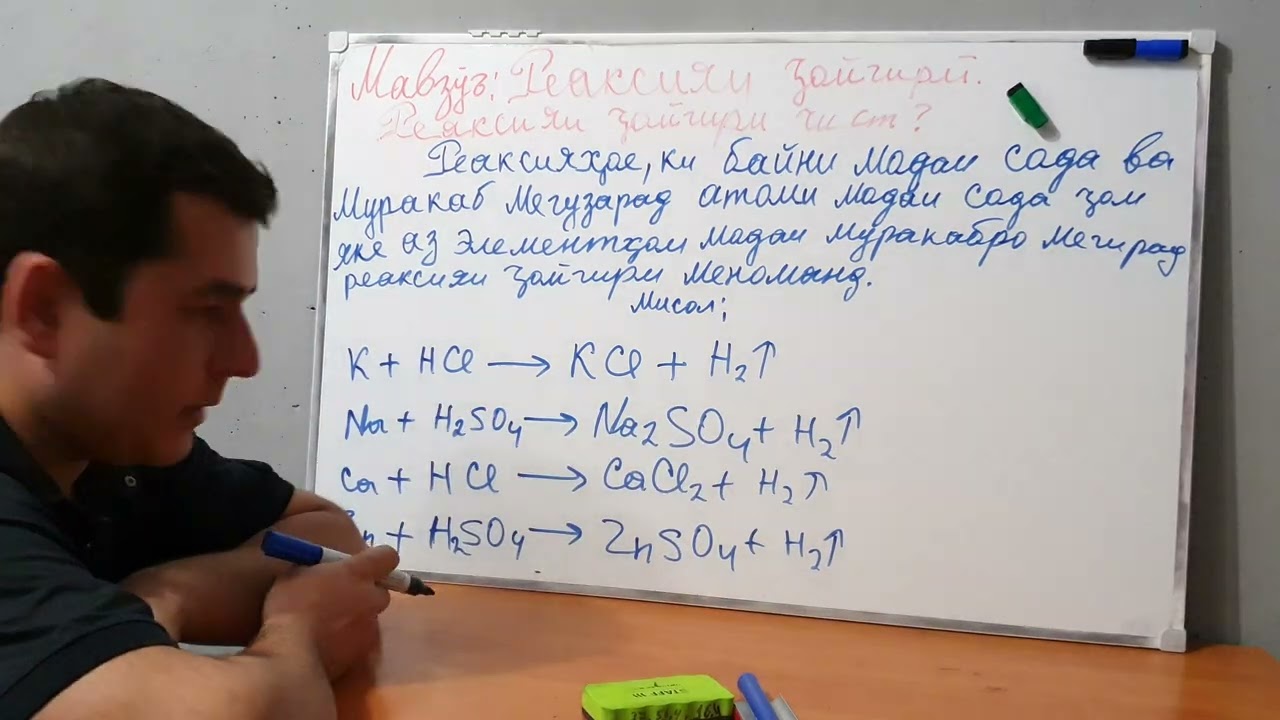 Мавзӯъ: Реаксияи ҷойгирӣ.
Реаксияи ҷойгири чист?
Реаксияҳое, ки байни модаи сода ва
муракаб мегузарад атоми модаи сода ҷои
яке аз элементҳои модаи муракабро мегирад
реаксияи ҷойгири меноманд.
Мисол;
K + HCl → KCl + H₂↑
Na + H₂SO₄ → Na₂SO₄ + H₂↑
Ca + HCl → CaCl₂ + H₂↑
Zn + H₂SO₄ → ZnSO₄ + H₂↑
STAFF III